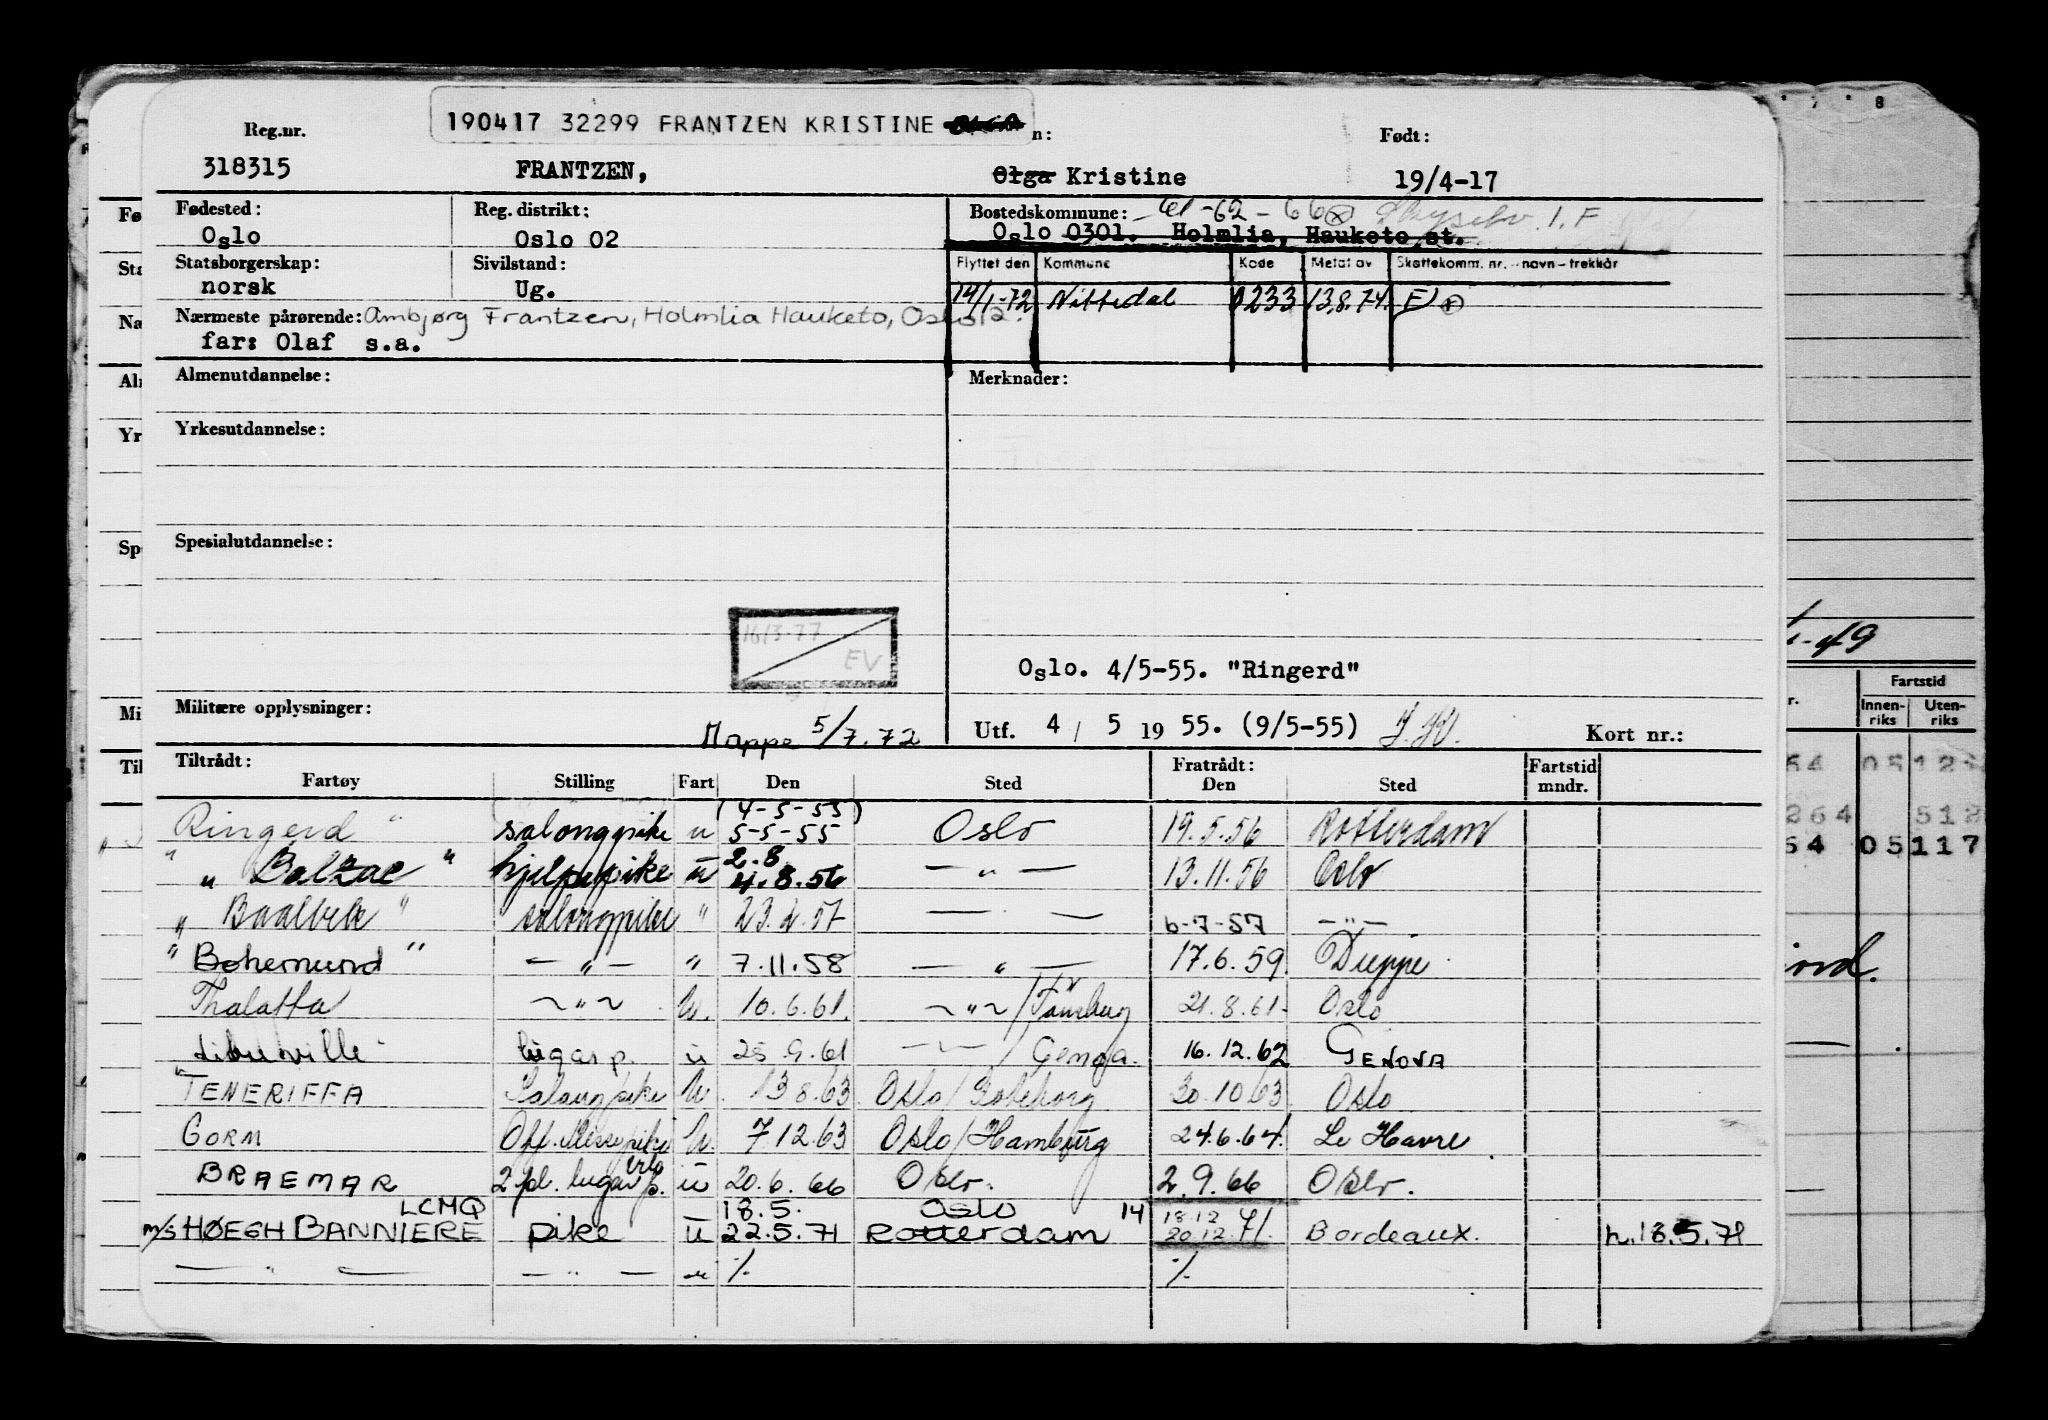 190417 32299 FRANTZEN KRISTINE
Reg.nr. n: Født:
318315 FRANTZEN, Olga Kristine 19/4-17
Fødested: Reg. distrikt: Bostedskommune: -61-62-66
Oslo Oslo 02 Oslo 0301. Holmlia, Hauketo st.
Statsborgerskap: Sivilstand: Flyttet den Kommune Kode Metat av Skattekomm. nr. - navn - trekkår
norsk Ug. 14/1-72 Nittedal 0233 13.8.74.
Nærmeste pårørende: Ambjørg Frantzen, Holmlia Hauketo, Oslo
far: Olaf s.a.
Almenutdannelse: Merknader:
Yrkesutdannelse:
Spesialutdannelse:
16/3-77
EV
Oslo. 4/5-55. "Ringerd"
Militære opplysninger: Mappe 5/7.72 Utf. 4 / 5 19 55. (9/5-55) Kort nr.:
Tiltrådt: Fratrådt: Fartstid
Fartøy Stilling Fart Den Sted Den Sted mndr.
(4-5-55)
Ringerd " salongpike u 5-5-55 Oslo 19.5.56 Rotterdam
2.8
" Balzac " hjelpepike u 4.8.56 — " — 13.11.56 Oslo
" Baalbek " salongpike " 23.2.57 — — 6-7-57 — " —
" Bohemund " — " — " 7.11.58 — " — 17.6.59 Dieppe
Thalatta — " — u. 10.6.61. — " — / Tønsberg 21.8.61. Oslo
Libreville lugarp. u 25.9.61 — " — / Genoa. 16.12.62 GENOVA
TENERIFFA Salongpike u 13.8.63 Oslo/Gøteborg 30.10.63 Oslo
GORM Off. Messepike u. 7.12.63 Oslo/Hamburg 24.6.64. Le Havre
BRAEMAR 2 pl. lugarp. u 20.6.66 Oslo. 2.9.66 Oslo.
LCMQ 18.5. Oslo 14 18.12
m/s HØEGH BANNIERE pike u 22.5.71 Rotterdam 20.12.71. Bordeaux. h.18.5.71
— " — — " — u % %
Fø
Sta
Na
Alr
Yr
Sp
Mi
Til
7 8
-49
Fartstid
r. Innen-riks Uten-riks
64 05 12
264 512
64 05 117